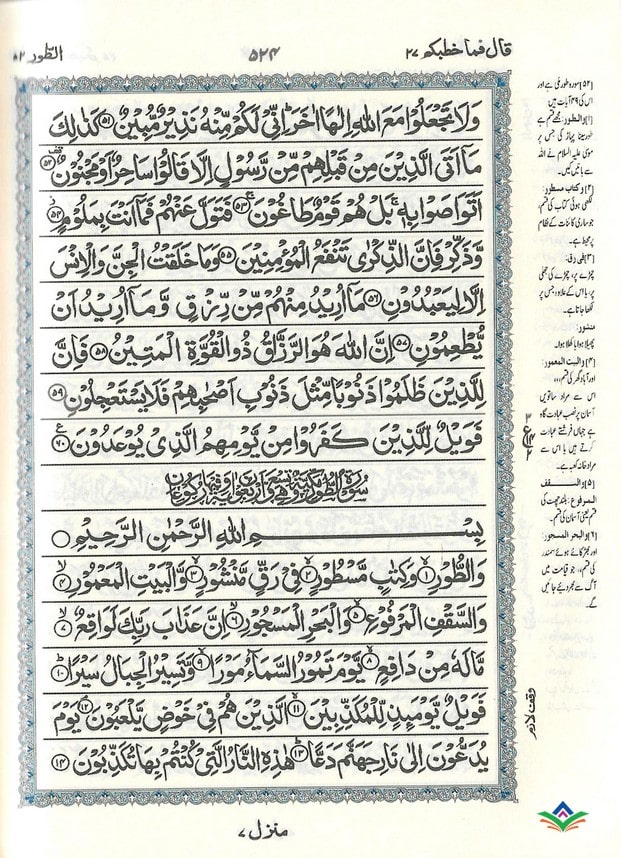 قال فما خطبکم ۲۷ ۵۲۴ الطور ۵۲
وَلَا تَجْعَلُوْا مَعَ اللّٰهِ اِلٰهًا اٰخَرَ ؕ اِنِّیْ لَكُمْ مِّنْهُ نَذِیْرٌ مُّبِیْنٌ ۵۱ كَذٰلِكَ
مَاۤ اَتَی الَّذِیْنَ مِنْ قَبْلِهِمْ مِّنْ رَّسُوْلٍ اِلَّا قَالُوْا سَاحِرٌ اَوْ مَجْنُوْنٌ ۵۲
اَتَوَاصَوْا بِهٖ ۚ بَلْ هُمْ قَوْمٌ طَاغُوْنَ ۵۳ فَتَوَلَّ عَنْهُمْ فَمَاۤ اَنْتَ بِمَلُوْمٍ ۵۴
وَّذَكِّرْ فَاِنَّ الذِّكْرٰی تَنْفَعُ الْمُؤْمِنِیْنَ ۵۵ وَمَا خَلَقْتُ الْجِنَّ وَالْاِنْسَ
اِلَّا لِیَعْبُدُوْنِ ۵۶ مَاۤ اُرِیْدُ مِنْهُمْ مِّنْ رِّزْقٍ وَّمَاۤ اُرِیْدُ اَنْ
یُّطْعِمُوْنِ ۵۷ اِنَّ اللّٰهَ هُوَ الرَّزَّاقُ ذُو الْقُوَّةِ الْمَتِیْنُ ۵۸ فَاِنَّ
لِلَّذِیْنَ ظَلَمُوْا ذَنُوْبًا مِّثْلَ ذَنُوْبِ اَصْحٰبِهِمْ فَلَا یَسْتَعْجِلُوْنِ ۵۹
فَوَیْلٌ لِّلَّذِیْنَ كَفَرُوْا مِنْ یَّوْمِهِمُ الَّذِیْ یُوْعَدُوْنَ ۶۰
سُوْرَةُ الطُّوْرِ مَكِّیَّةٌ وَّهِیَ تِسْعٌ وَّاَرْبَعُوْنَ اٰیَةً وَّفِیْهَا رُكُوْعَانِ
بِسْمِ اللّٰهِ الرَّحْمٰنِ الرَّحِیْمِ
وَالطُّوْرِ ۱ وَكِتٰبٍ مَّسْطُوْرٍ ۲ فِیْ رَقٍّ مَّنْشُوْرٍ ۳ وَّالْبَیْتِ الْمَعْمُوْرِ ۴
وَالسَّقْفِ الْمَرْفُوْعِ ۵ وَالْبَحْرِ الْمَسْجُوْرِ ۶ اِنَّ عَذَابَ رَبِّكَ لَوَاقِعٌ ۷
مَّا لَهٗ مِنْ دَافِعٍ ۸ یَّوْمَ تَمُوْرُ السَّمَآءُ مَوْرًا ۹ وَّتَسِیْرُ الْجِبَالُ سَیْرًا ۱۰
فَوَیْلٌ یَّوْمَئِذٍ لِّلْمُكَذِّبِیْنَ ۱۱ الَّذِیْنَ هُمْ فِیْ خَوْضٍ یَّلْعَبُوْنَ ۱۲ یَوْمَ
یُدَعُّوْنَ اِلٰی نَارِ جَهَنَّمَ دَعًّا ۱۳ هٰذِهِ النَّارُ الَّتِیْ كُنْتُمْ بِهَا تُكَذِّبُوْنَ ۱۴
[۵۲] سورہ طور مکی ہے اور
اس کی ۴۹ آیات ہیں
[۱] والطور: مجھے قسم ہے
طور سینا پہاڑ کی جس پر
موسیٰ علیہ السلام نے اللہ
سے باتیں کیں۔
[۲] و کتاب مسطور:
لکھی ہوئی کتاب کی قسم،
جو ساری کائنات کے نظام
پر محیط ہے۔
[۳] فی رق:
چمڑے پر، چمڑے کی جھلی
پر، یا اس کے علاوہ جس پر
لکھا جاتا ہے۔
منشور:
پھیلا ہوا یا کھلا ہوا۔
[۴] والبیت المعمور:
اور آباد گھر کی قسم،
اس سے مراد ساتویں
آسمان پر نصب عبادت گاہ
ہے جہاں فرشتے عبادت
کرتے ہیں یا اس سے
مراد خانہ کعبہ ہے۔
[۵] والسقف
المرفوع: بلند چھت کی
قسم یعنی آسمان کی قسم۔
[۶] والبحر المسجور:
اور بھڑکائے ہوئے سمندر
کی قسم، جو قیامت میں
آگ سے بھر دئے جائیں
گے۔
ع
وقف لازم
منزل ۷